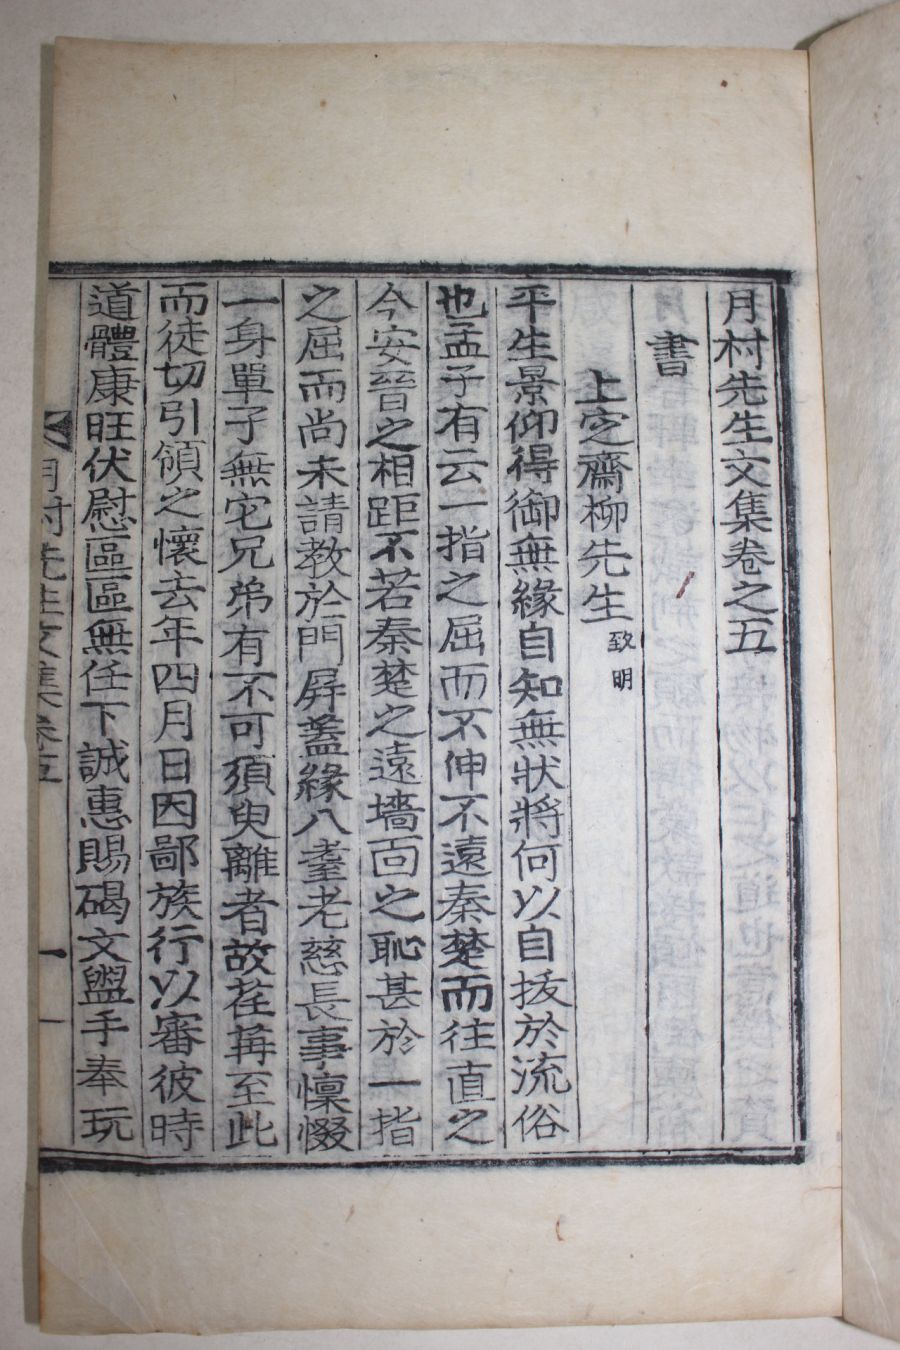 月村先生文集卷之五
書
上定齋柳先生 致明
平生景仰得御無緣自知無狀將何以自拔於流俗
也孟子有云一指之屈而不伸不遠秦楚而往直之
今安晉之相距不若秦楚之遠墻面之恥甚於一指
之屈而尚未請教於門屛蓋緣八耋老慈長事懍惙
一身單孑無它兄弟有不可須臾離者故荏苒至此
而徒切引領之懷去年四月日因鄙族行以審彼時
道體康旺伏慰區區無任下誠惠賜碣文盥手奉玩
月村先生文集卷五 一